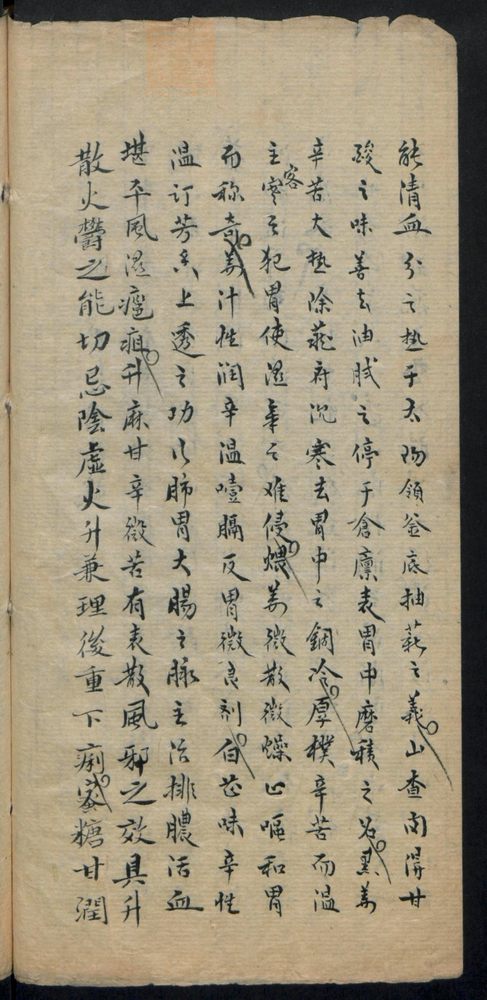 能清血分之热于太阳領釜底抽薪之義山查闻得甘
酸之味善去油腻之停于倉廪表胃中磨積之名黑姜
辛苦大热除藏府沉寒去胃中之錮冷厚樸辛苦而温
主客寒之犯胃使湿氣之难侵煨姜微散微燥止嘔和胃
而称奇姜汁性润辛温噎膈反胃微良剂白芷味辛性
温订芳香上透之功行肺胃大腸之脉主治排膿活血
堪平風湿瘧疽升麻甘辛微苦有表散風邪之效具升
散火鬱之能切忌陰虚火升兼理後重下痢蜜糖甘潤